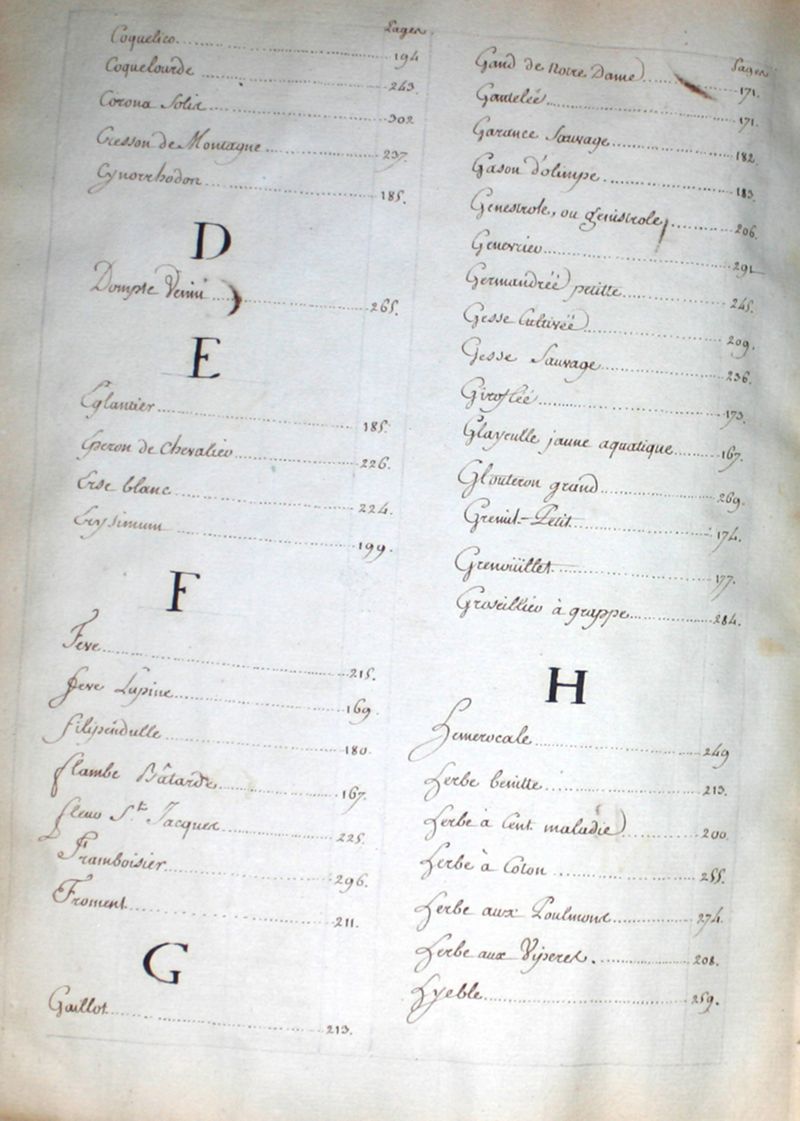 Pages
Coquelico 194
Coquelourde 243
Corona Solis 302
Cresson de Montagne 237.
Cynorrhodon 185.
D
Dompte Venin 265.
E
Eglantier 185.
Eperon de Chevalier 226.
Erse blanc 224.
Erysimum 199.
F
Feve 215.
feve Lupine 169
filipendulle 180.
flambe Bâtarde 167.
fleur St. Jacques 225.
Framboisier 296.
Froment 211.
G
Gaillot 213.
Pages
Gand de Notre Dame 171.
Gantelée 171.
Garance Sauvage 182.
Gason d'olimpe 183.
Genestrole, ou genistrole 206.
Genevrier 291
Germandréé petitte 245.
Gesse Cultivéé 209.
Gesse Sauvage 236.
Girofléé 173.
Glayeulle jaune aquatique 167.
Glouteron grand 269.
Gremil-Petit 174.
Grenoüillet 177.
Groseillier à grappe 284.
H
Hemerocale 249
Herbe benitte 213.
Herbe à Cent maladie 200
Herbe à Coton 255.
Herbe aux Poulmons 274.
Herbe aux Viperes. 208.
Hyeble 259.